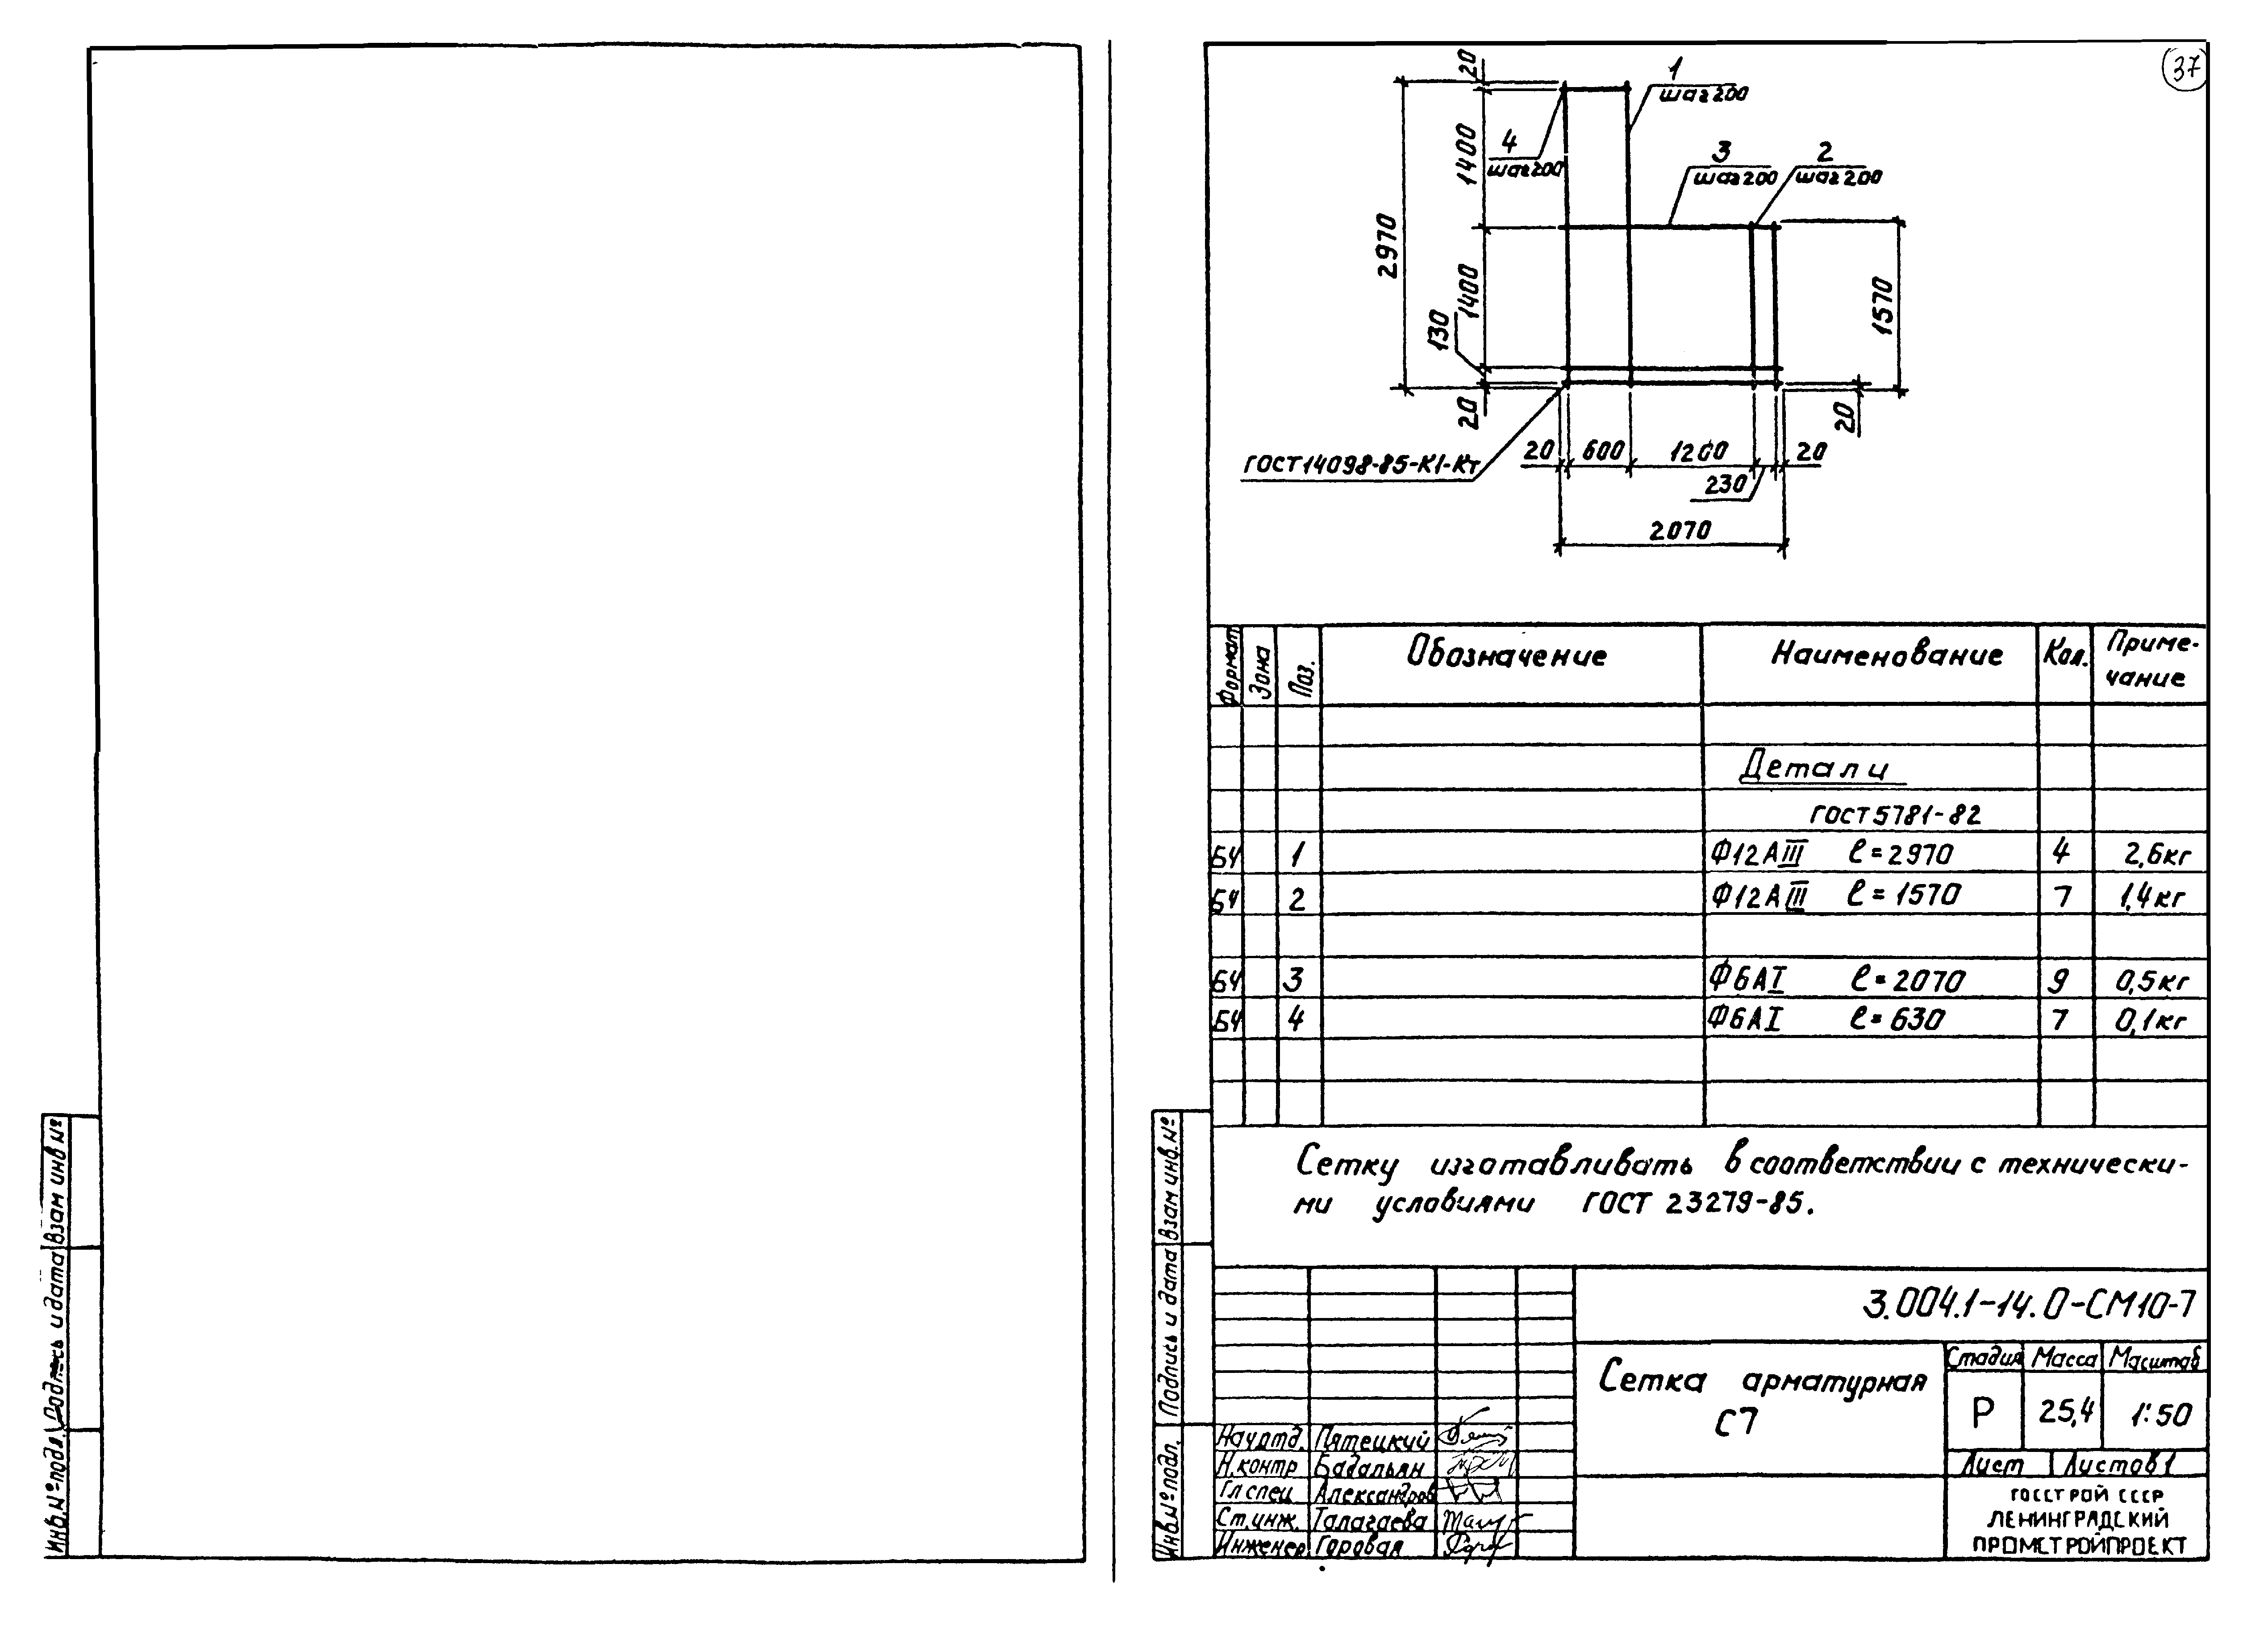 Взам инв №
Подпись и дата
Инв. № подл.
37
20
1
шаг 200
1400
4
шаг 200
3
шаг 200
2
шаг 200
2970
1400
130
1570
20
20
ГОСТ 14098-85-К1-Кт
20 600 1200 20
230
2070
Формат Зона Поз. Обозначение Наименование Кол. Приме-
чание
Детали
ГОСТ 5781-82
БЧ 1 Ф12АIII ℓ=2970 4 2,6кг
БЧ 2 Ф12АIII ℓ=1570 7 1,4кг
БЧ 3 Ф6АI ℓ=2070 9 0,5кг
БЧ 4 Ф6АI ℓ=630 7 0,1кг
Сетку изготавливать в соответствии с технически-
ми условиями ГОСТ 23279-85.
Взам инв. №
Подпись и дата
Инв № подл.
3.004.1-14.0-СМ10-7
Сетка арматурная
С7
Стадия Масса Масштаб
Р 25,4 1:50
Лист Листов 1
Нач.отд. Пятецкий
Н.контр Бадальян
Гл спец Александров
Ст.инж. Талагаева
Инженер Горовая
ГОССТРОЙ СССР
ЛЕНИНГРАДСКИЙ
ПРОМСТРОЙПРОЕКТ